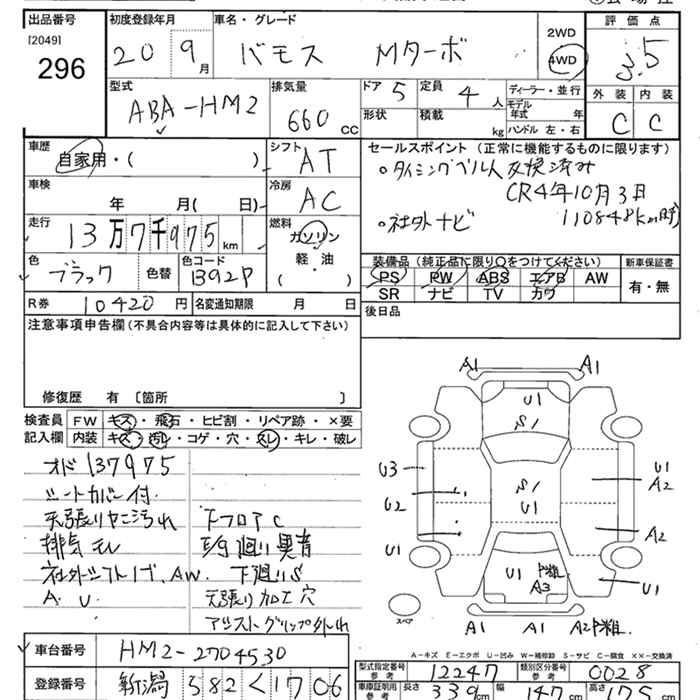 出品番号
[2049]
296
初度登録年月
20 9月
車名・グレード
バモス Mターボ
2WD
4WD
評価点
3.5
型式
ABA-HM2
排気量
660 cc
ドア 5
形状
定員 4 人
積載 kg
ディーラー・並行
モデル年式 年
ハンドル 左・右
外装 内装
C C
車歴
自家用・( )
シフト AT
車検
年 月( 日)
冷房 AC
走行
13万7千975 km
燃料
ガソリン
軽・油
( )
色
ブラック
色替
色コード
B92P
R券 10420 円
名変通知期限 月 日
セールスポイント(正常に機能するものに限ります)
○タイミングベルト交換済み
CR4年10月3日
110848km時
○社外ナビ
装備品(純正品に限り○をつけてください)
PS PW ABS エアB AW
SR ナビ TV カワ
新車保証書
有・無
後日品
注意事項申告欄(不具合内容等は具体的に記入して下さい)
修復歴 有 〔箇所 〕
検査員
記入欄
FW キズ・飛石・ヒビ割・リペア跡・×要
内装 キズ・汚れ・コゲ・穴・スレ・キレ・破レ
オド137975
シートカバー付
天張りヤニ汚れ
排気モレ
社外シフト1ケ、AW.
A. U.
下フロアC
下廻りS
天張り加工穴
アシストグリップ外れ
A1 A1
U1
S1
U3
U2
U1
S1
U1
U1
A2
A2
U1
U1
A3
凹雑
A1 A1 A2凹雑
スペア
A-キズ E-エクボ U-凹み W-補修跡 S-サビ C-腐食 XX-交換済
車台番号 HM2-2704530
登録番号 新潟 582 く 1706
型式指定番号
参考
12247
類別区分番号
参考
0028
車庫証明用
参考
長さ 339 cm
147 cm
高さ